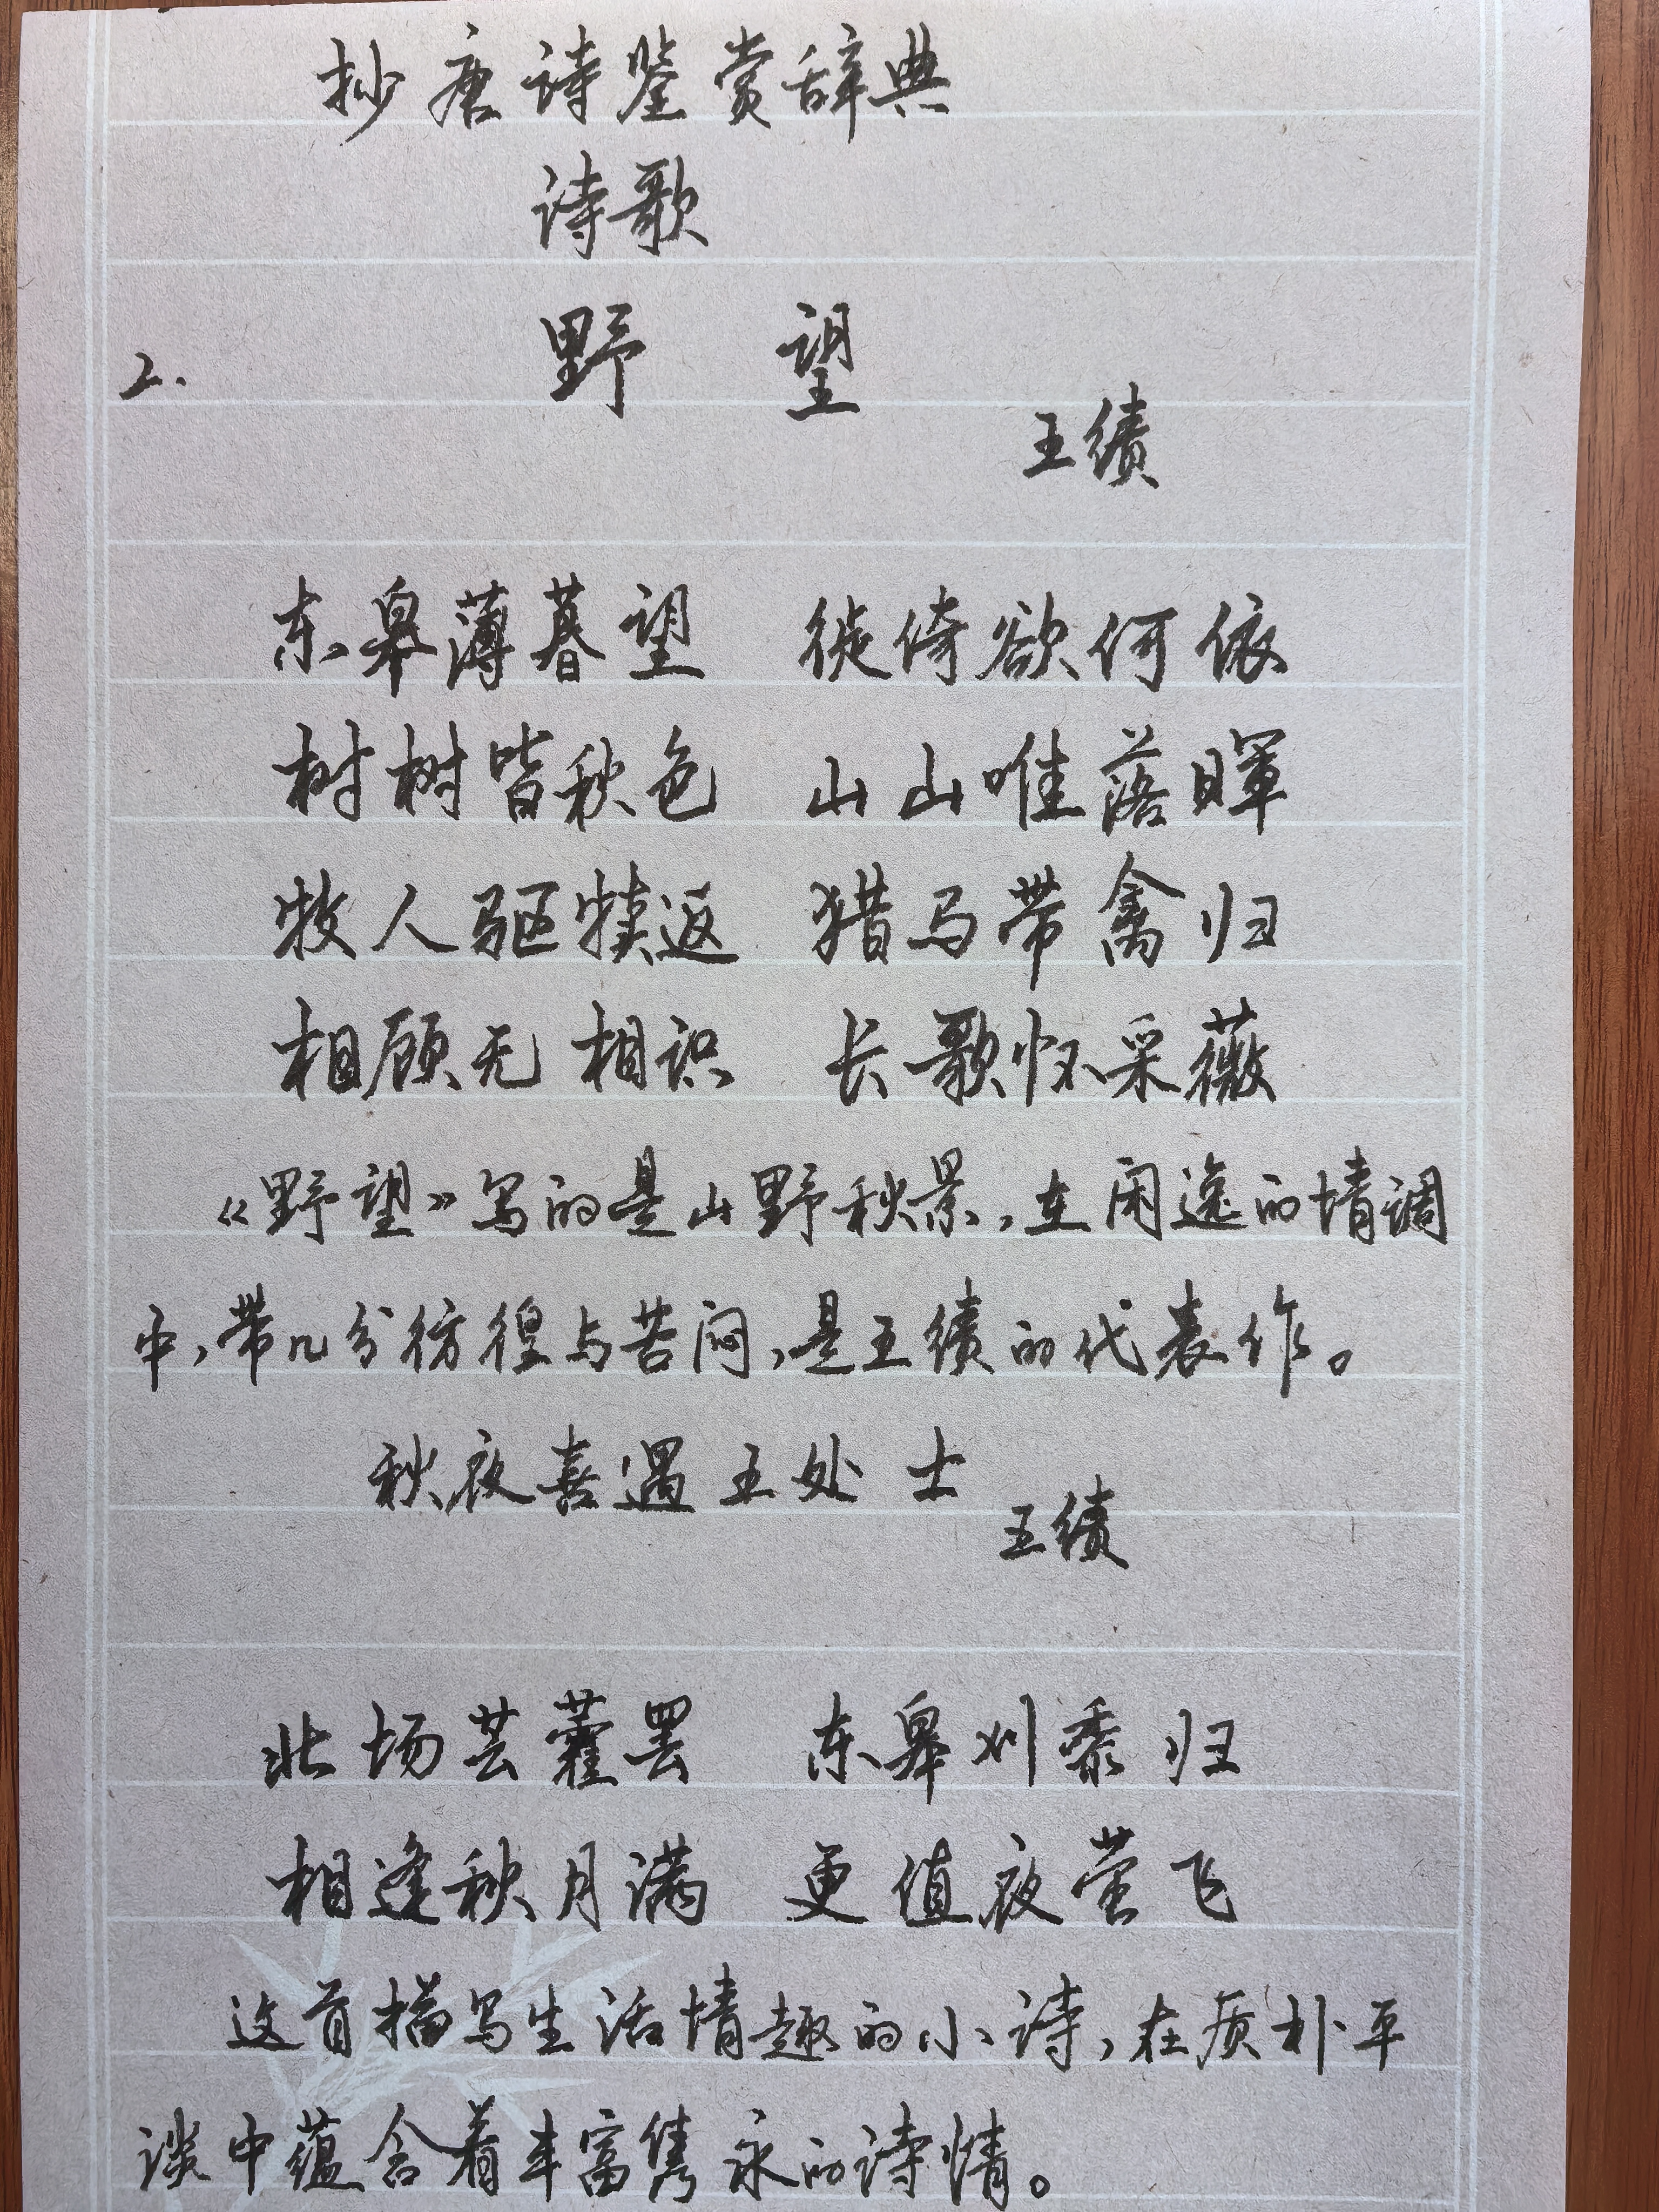 抄唐诗鉴赏辞典
诗歌
2. 野 望
王绩
东皋薄暮望 徙倚欲何依
树树皆秋色 山山唯落暉
牧人驱犊返 猎马带禽归
相顾无相识 长歌怀采薇
《野望》写的是山野秋景,在闲逸的情调
中,带几分彷徨与苦闷,是王绩的代表作。
秋夜喜遇王处士
王绩
北场芸藿罢 东皋刈黍归
相逢秋月满 更值夜萤飞
这首描写生活情趣的小诗,在质朴平
谈中蕴含着丰富隽永的诗情。